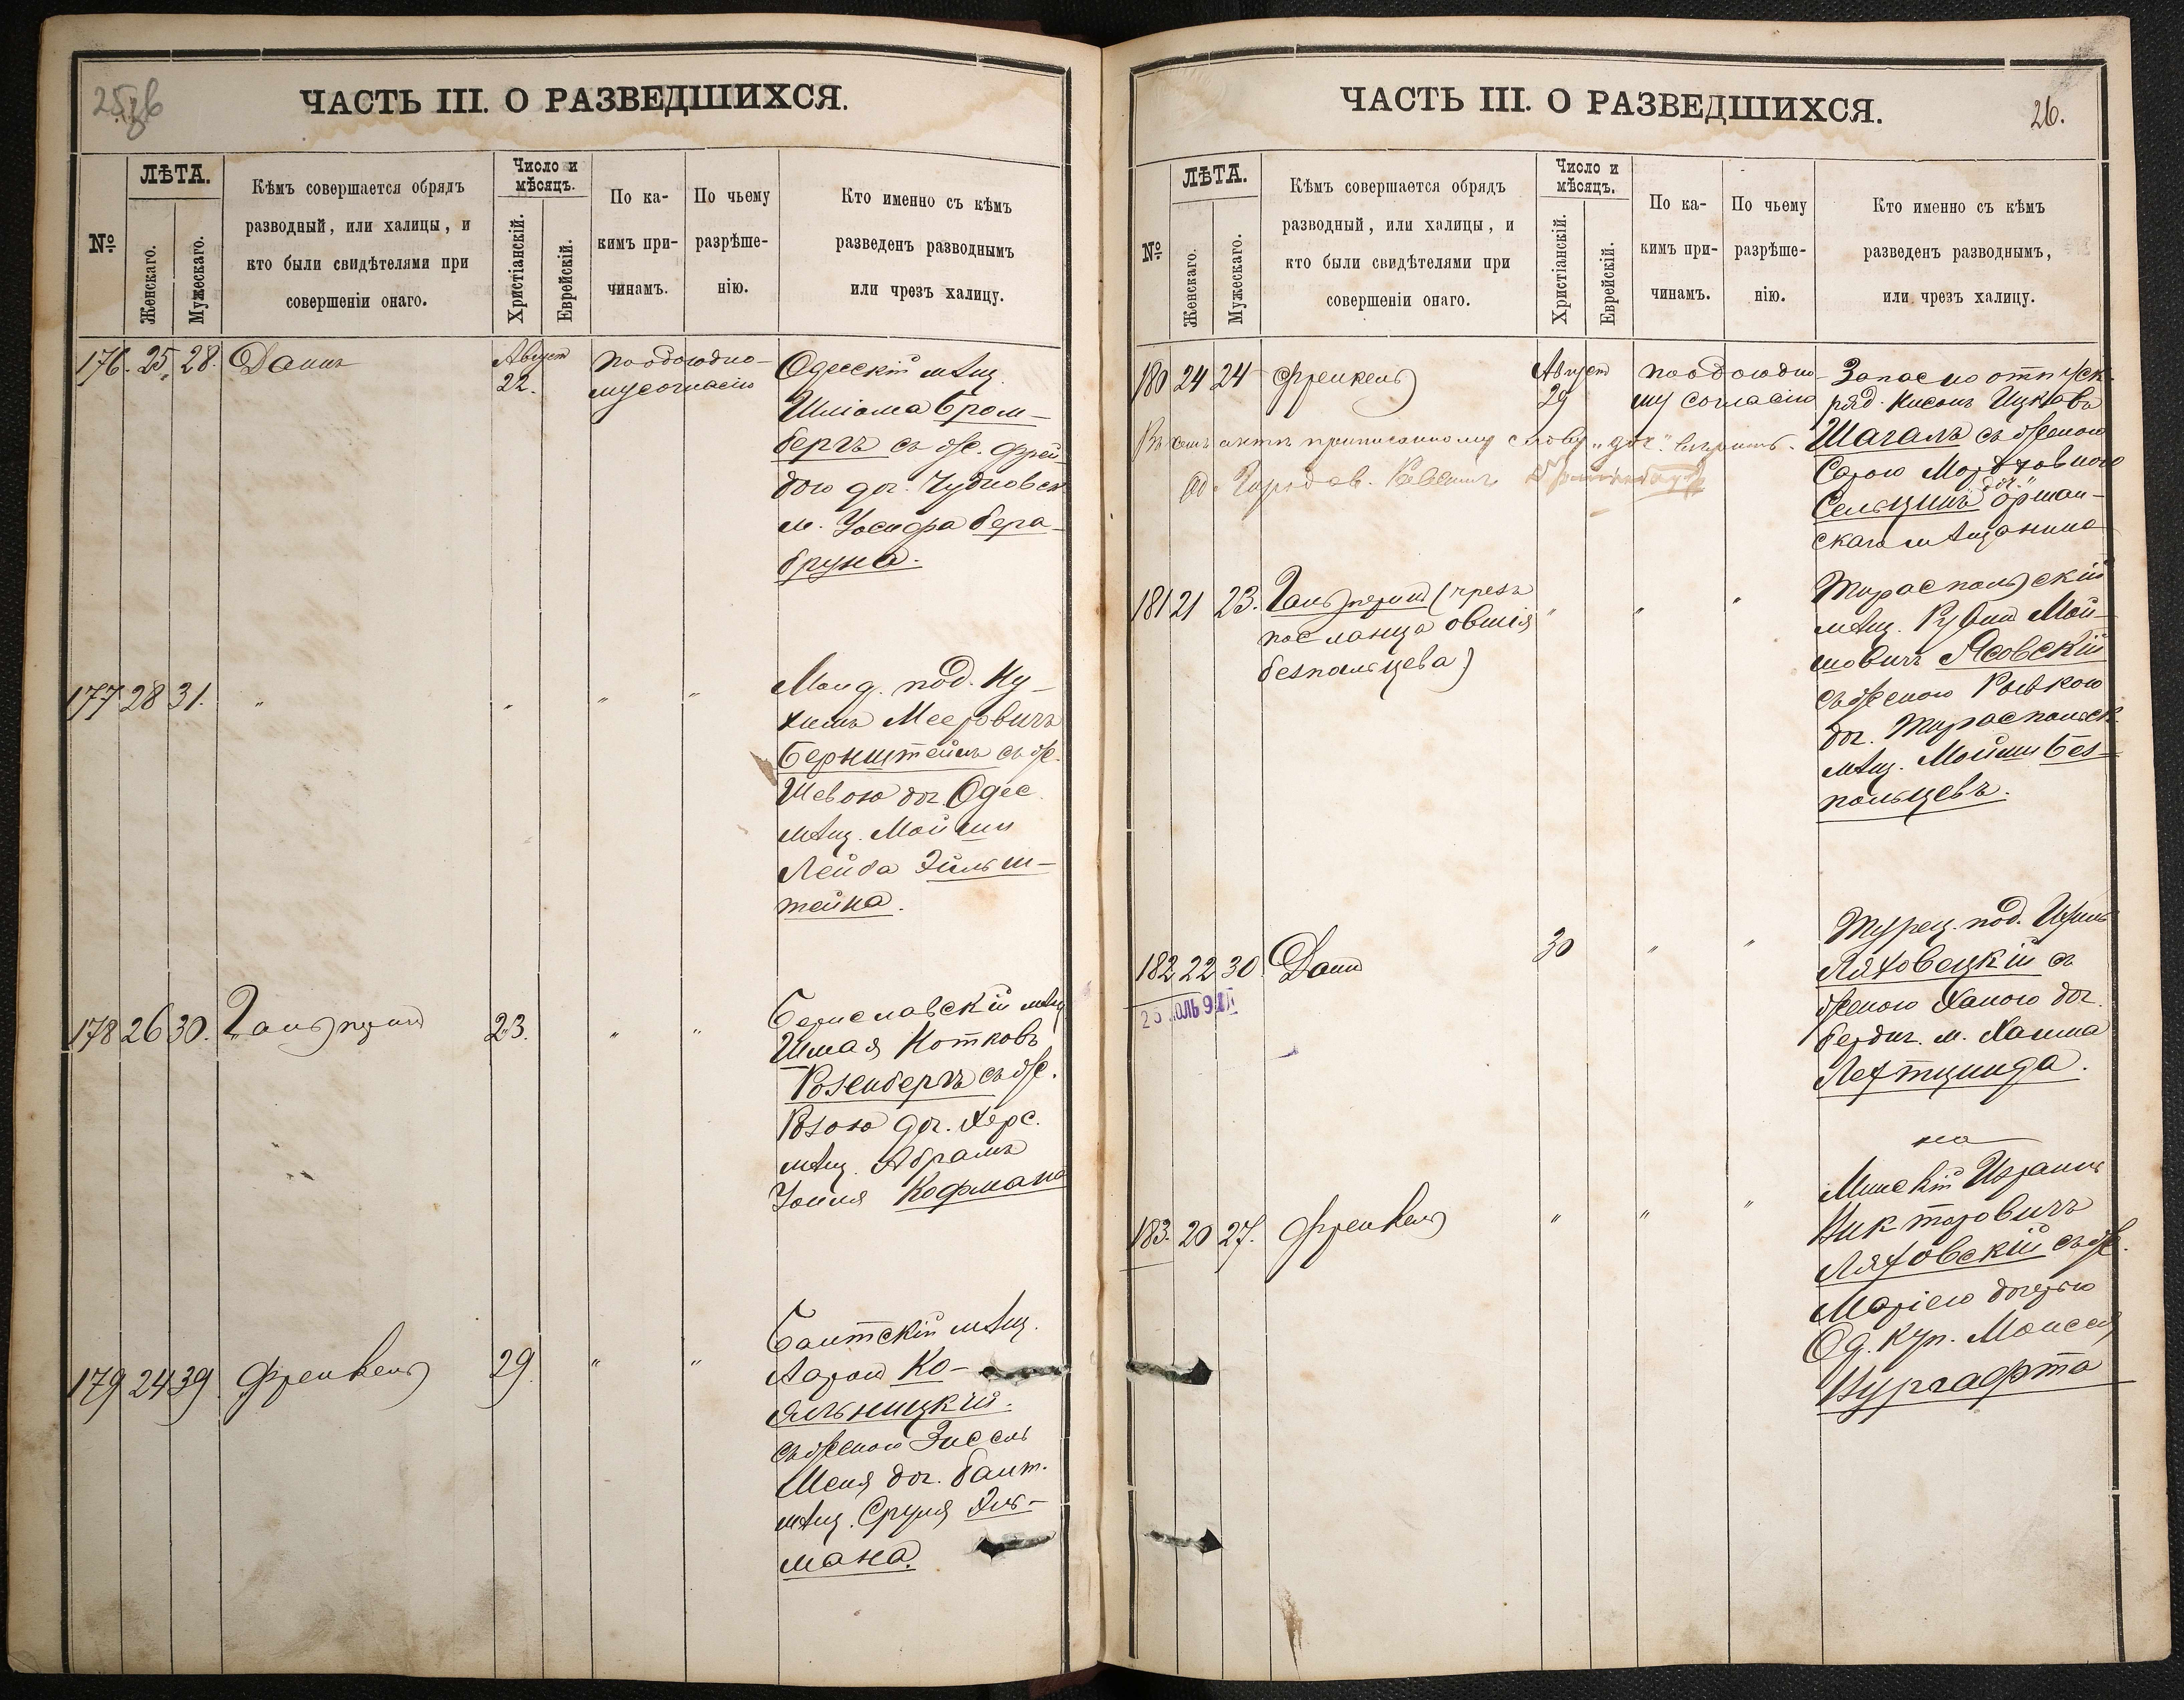 ЧАСТЬ III. О РАЗВЕДШИХСЯ.
№
ЛѢТА.
Женскаго.
Мужескаго.
Кѣмъ совершается обрядъ
разводный, или халицы, и
кто были свидѣтелями при
совершеніи онаго.
Число и
мѣсяцъ.
Христіанскій.
Еврейскій.
По ка-
кимъ при-
чинамъ.
По чьему
разрѣше-
нію.
Кто именно съ кѣмъ
разведенъ разводнымъ
или чрезъ халицу.
176. 25 28. Даинъ
Август
22.
по обоюдно-
му согласію
Одесскій мѣщ.
Шліома Бром-
бергъ съ ж. Фрей
дою доч. Чудновск
м. Іосифа Бера-
бруна.
177 28 31. " " " "
под. Ну-
химъ Мееровичъ
Бернштейнъ съ ж.
Шевою доч. Одес.
мѣщ. Мойши
Лейба Эйльш-
тейна.
178 26 30. Гальперинъ 23. " "
Бериславскій мѣщ
Шмая Нотковъ
Розенбергъ съ ж.
Розою доч. Херс.
мѣщ. Абрамъ
Іоиля Кофмана
179 24 39 Френкель 29. " "
Балтскій мѣщ.
Ааронъ Ко-
яльницкій
съ женою Энесель
Меня доч. Балт.
мѣщ. Сруля Эль-
мана.
ЧАСТЬ III. О РАЗВЕДШИХСЯ.
26.
№
ЛѢТА.
Женскаго.
Мужескаго.
Кѣмъ совершается обрядъ
разводный, или халицы, и
кто были свидѣтелями при
совершеніи онаго.
Число и
мѣсяцъ.
Христіанскій.
Еврейскій.
По ка-
кимъ при-
чинамъ.
По чьему
разрѣше-
нію.
Кто именно съ кѣмъ
разведенъ разводнымъ,
или чрезъ халицу.
180 24 24 Френкель
Август
29
по обоюдно-
му согласію
Запасно отпуск.
ряд. Ицковъ
Шагалъ съ женою
Сарою Мордховною
доч.
Сельцинъ Оршан-
скаго мѣщанина
акта приписанному слову „доч." вѣрить.
181 21 23. Гальперинъ (чрезъ " " "
посланца Овшія
Безпальцева)
Тираспольскій
мѣщ. Рувин Мой-
шовичъ Ясовскій
съ женою Ривкою
доч. Тираспольск
мѣщ. Мойши Без-
пальцевъ.
182 22 30. Даинъ 30 " "
Турец. под.
Ляховецкій съ
женою Ханою доч.
Бердич. м. Хаима
Лехтцинда.
183. 20 27. Френкель " " "
Минскій Израиль
Викторовичъ
Ляховскій съ ж.
Маріею дочерью
Од. куп. Моисея
Вургафта